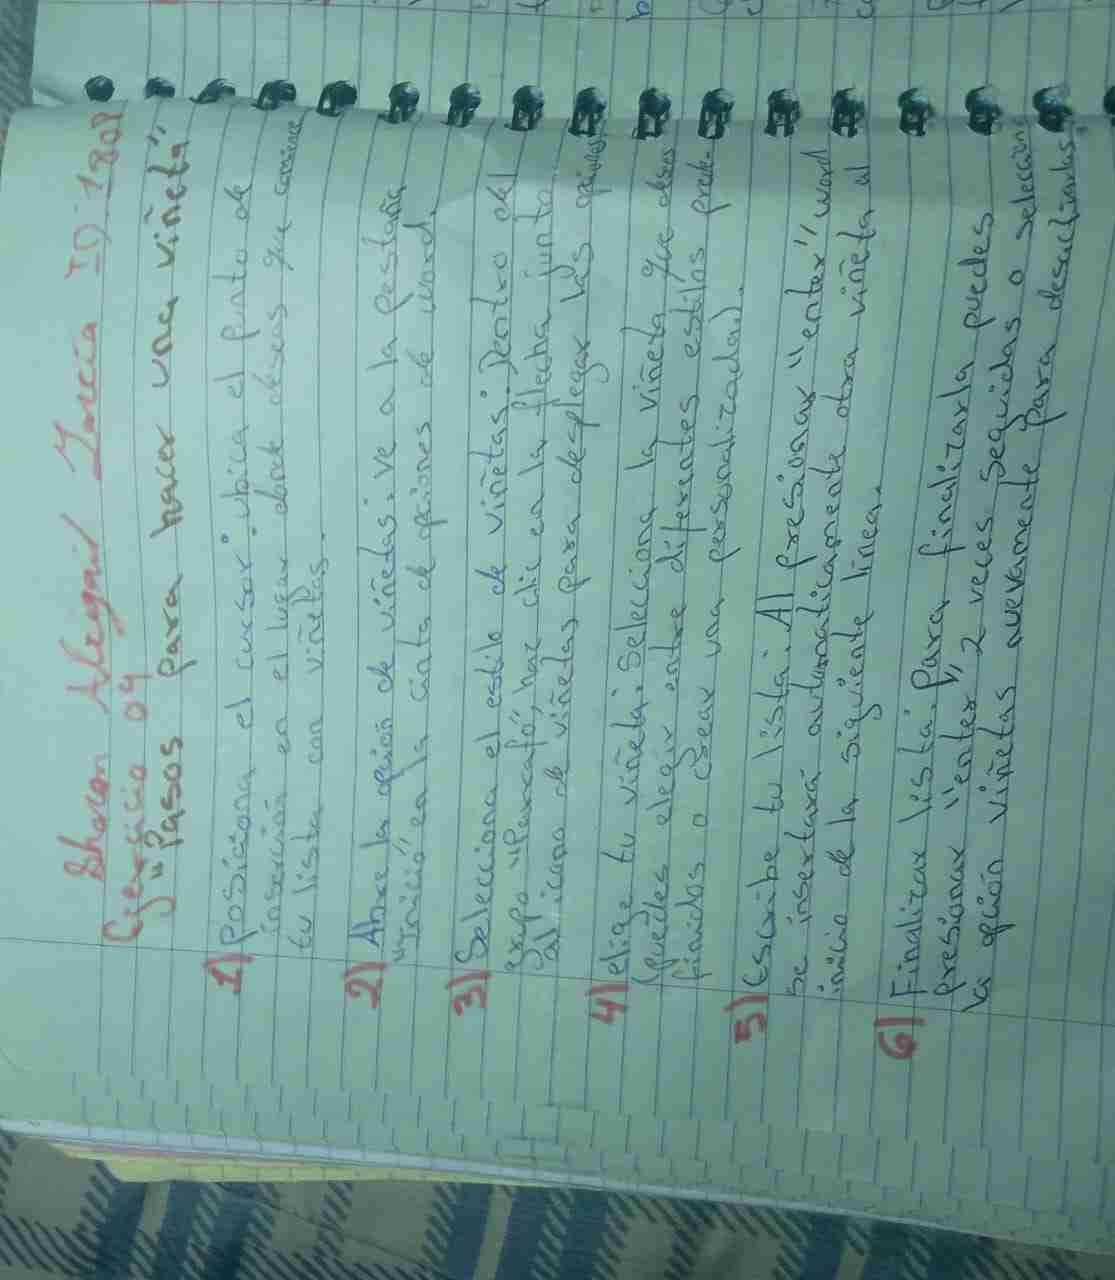 Sharon Alegair García ID 1808
Ejercicio 04
"Pasos para hacer una viñeta"
1) Posiciona el cursor: ubica el punto de
inserción en el lugar donde deseas que comience
tu lista con viñetas.
2) Abre la opción de viñetas: ve a la pestaña
"Inicio" en la cinta de opciones de word.
3) Selecciona el estilo de viñetas: Dentro del
grupo "Parrafo", haz clic en la flecha junto
al icono de viñetas para desplegar las opciones
4) elige tu viñeta: Selecciona la viñeta que desees
(puedes elegir entre diferentes estilos prede-
finidos o crear una personalizada).
5) Escribe tu lista: Al presionar "enter" word
se insertará automaticamente otra viñeta al
inicio de la siguiente línea.
6) Finalizar lista: Para finalizarla puedes
presionar "enter" 2 veces seguidas o selección
la opción viñetas nuevamente para desactivarlas.